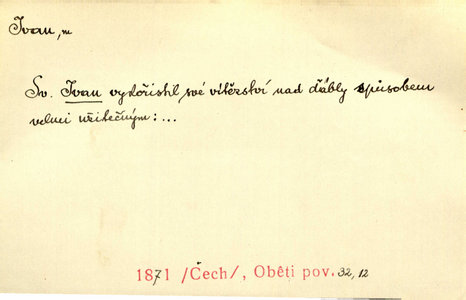 Ivan, m
Sv. Ivan vykořistil své vítězství nad ďábly způsobem
velmi užitečným: ...
1871 /Čech/, Oběti pov. 32, 12